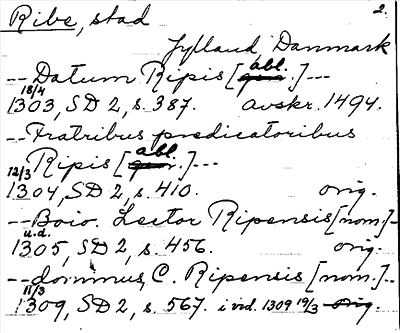 Ribe, stad 2.
Jylland, Danmark
-- Datum Ripis [abl.] ---
18/4 1303, SD 2, s. 387. avskr. 1494.
-- Fratribus predicatoribus
Ripis [abl.] ---
12/3 1304, SD 2, s. 410. orig.
-- Boio. Lector Ripensis [nom.] --
u.d. 1305, SD 2, s. 456. orig.
-- dominus, C. Ripensis [nom.] --
11/3 1309, SD 2, s. 567. i vid. 1309 19/3 orig.